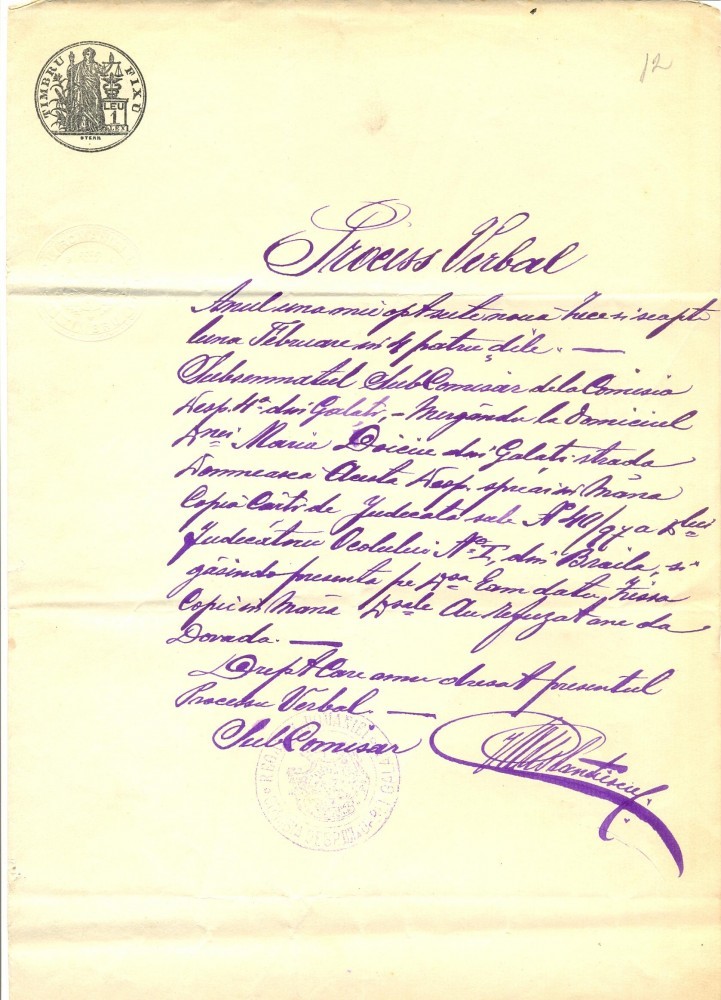 TIMBRU FIXU
LEU
1
STERN
12
Process Verbal
Anul una mie opt sute nouă zece si septe
luna Februare in 4 patru dile. —
Subsemnatul SubComisar dela Comisia
Desp. 4a. din Galati, – Mergându la Domiciul
Dnei Maria din Galati strada
Domneasca Acesta Desp. spre ai in Mâna
Copia Cărti de Judecata sale No 40/97 a Dlui
Judecătoru Ocolului No. I, din Braila, si
găsindo presenta pe Dsa Eam datu
Copii in Mână Dsale Au refuzat ane da
Dovada. —
Drept Care amu dresat presentul
Procesu Verbal. —
SubComisar